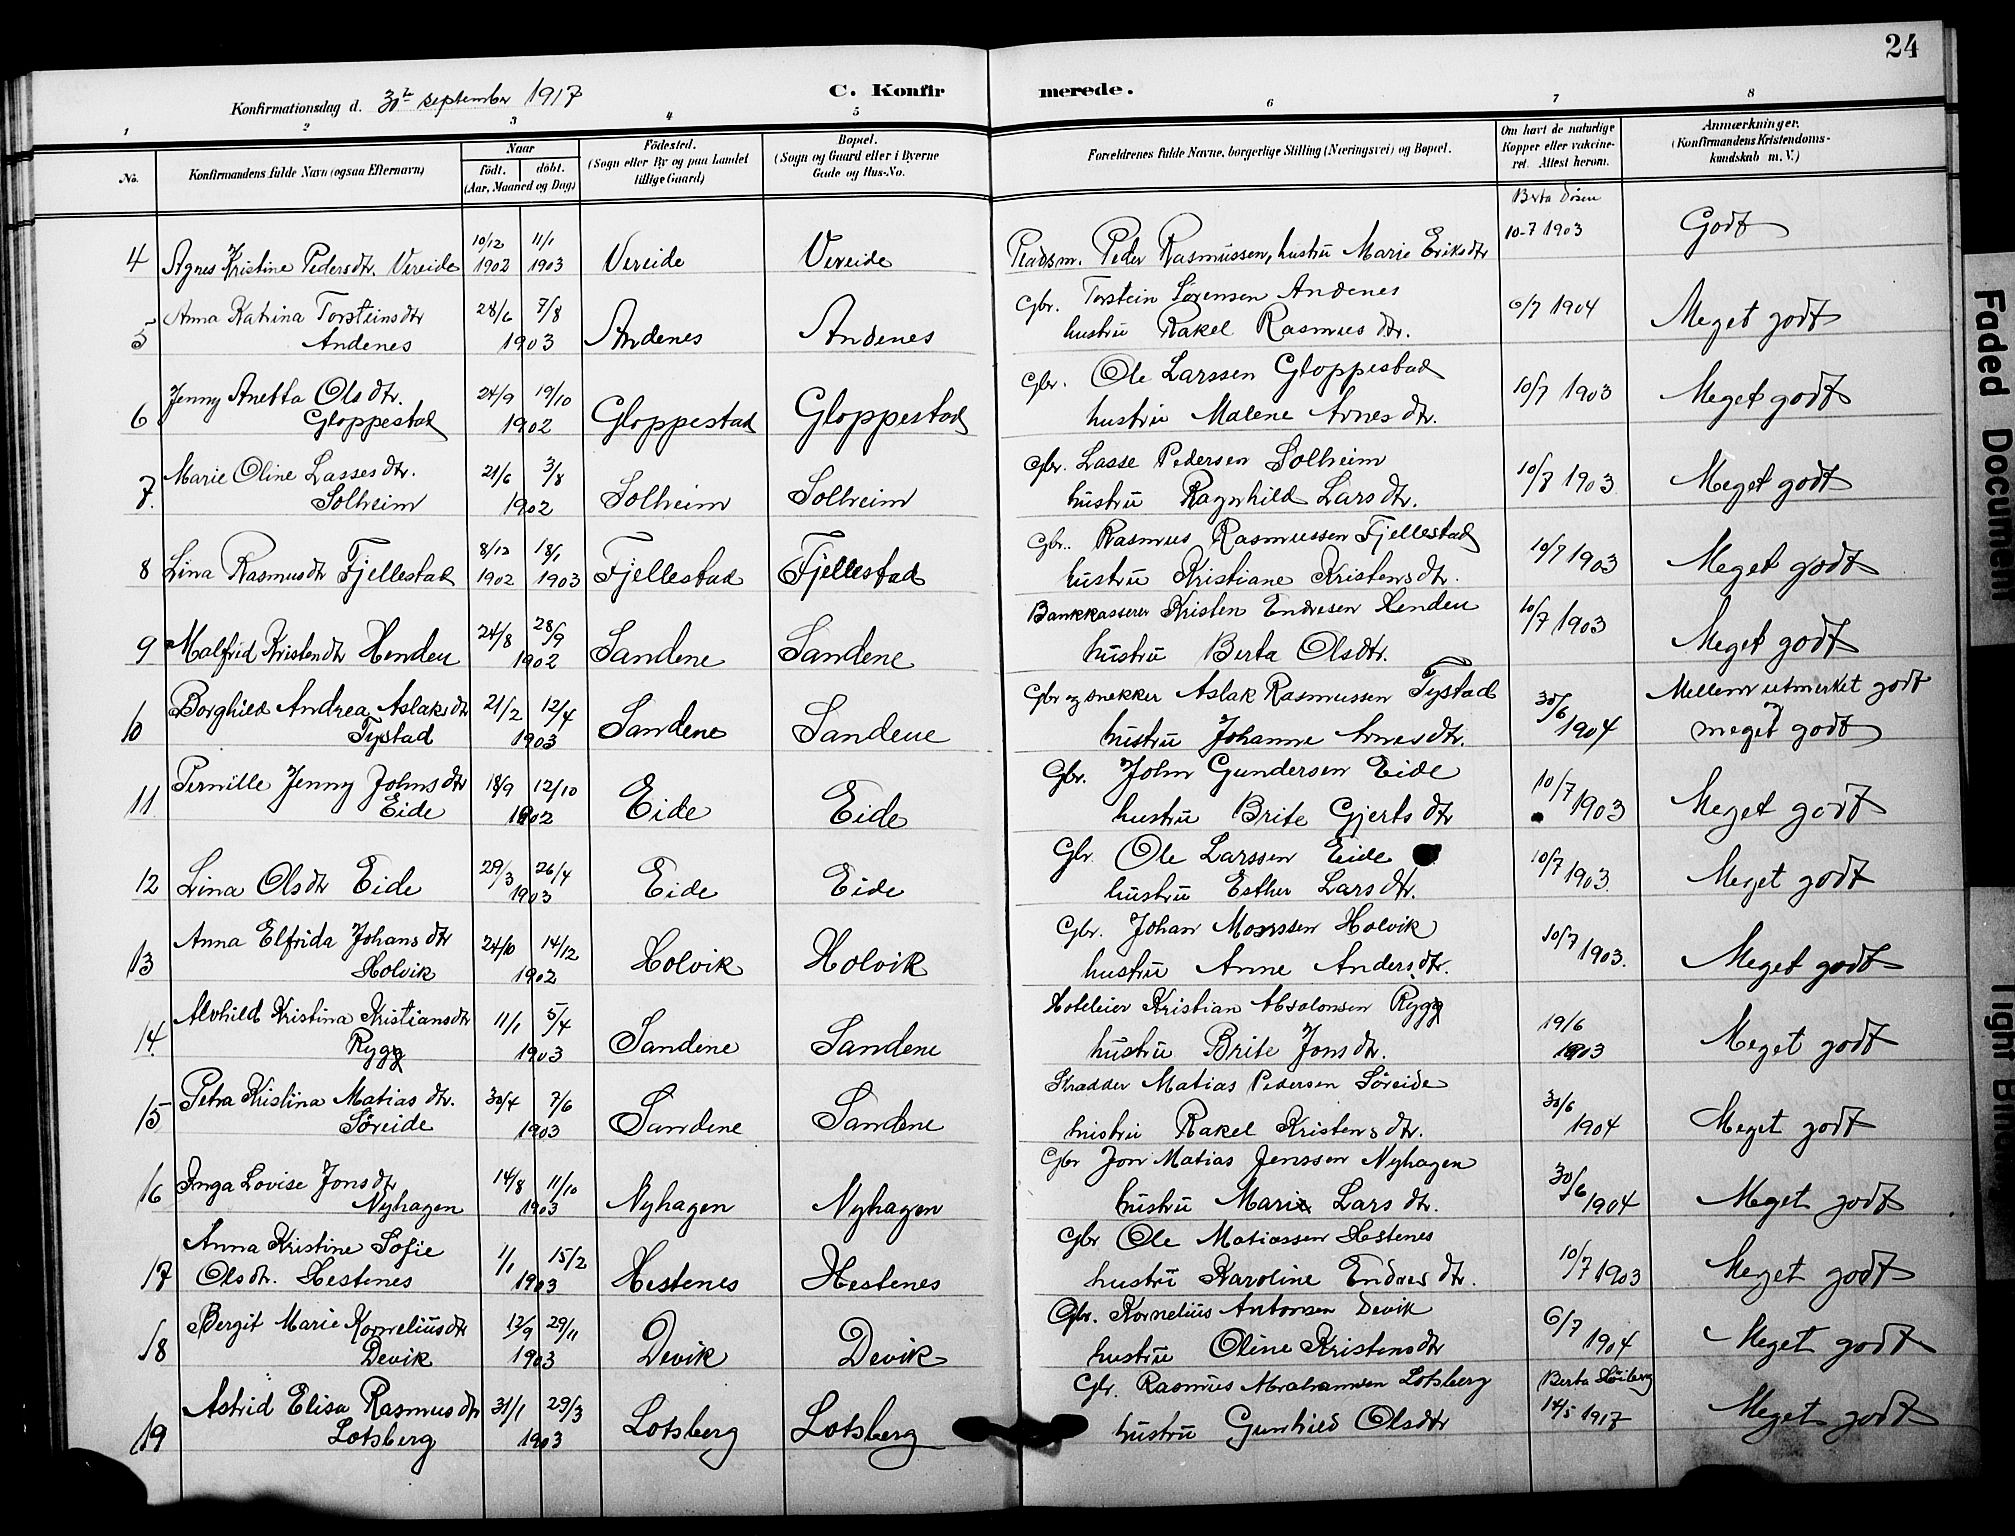 24
Konfirmationsdag d. 30te september 1917
C. Konfirmerede.
1 2 3 4 5 6 7 8
No.
Konfirmandens fulde Navn (ogsaa Efternavn)
Naar
Født. døbt.
(Aar, Maaned og Dag)
Fødested.
(Sogn eller By og paa Landet
tillige Gaard)
Bopæl.
(Sogn og Gaard eller i Byerne
Gade og Hus-No.
Forældrenes fulde Navne, borgerlige Stilling (Næringsvei) og Bopæl.
Om havt de naturlige
Kopper eller vakcine-
ret. Attest herom.
Anmærkninger.
(Konfirmandens Kristendoms-
kundskab m. V.)
Berta Døsen
4 Agnes Kristine Pedersdtr. Vereide 10/12 1902 11/1 1903 Vereide Vereide Pladsm. Peder Rasmussen, hustru Marie Eriksdtr 10-7 1903 Godt
5 Anna Katrina Torsteinsdtr 28/6 7/8 Gbr. Torstein Sørensen Andenes 6/7 1904 Meget godt
Andenes 1903 Andenes Andenes hustru Rakel Rasmusdtr.
6 Jenny Anetta Olsdtr. 24/9 19/10 Gbr. Ole Larssen Gloppestad 10/7 1903 Meget godt
Gloppestad 1902 Gloppestad Gloppestad hustru Malene Arnesdtr.
7. Marie Oline Lassesdtr. 21/6 3/8 Gbr. Lasse Pedersen Solheim 10/7 1903 Meget godt
Solheim 1902 Solheim Solheim hustru Ragnhild Larsdtr.
8 Lina Rasmusdtr Fjellestad 8/12 1902 18/1 1903 Fjellestad Fjellestad Gbr. Rasmus Rasmussen Fjellestad 10/7 1903 Meget godt
hustru Kristiane Kristensdtr.
9 Malfrid Kristendtr Henden 24/8 28/9 1902 Sandene Sandene Bankkasserer Kristen Endresen Henden 10/7 1903 Meget godt
hustru Berta Olsdtr.
10 Borghild Andrea Aslaksdtr 21/2 12/4 Gbr og snekker Aslak Rasmussen Tystad 30/6 1904 Mellem utmerket godt
Tystad 1903 Sandene Sandene hustru Johanne Arnesdtr. meget godt
11 Pernille Jenny Johnsdtr 18/9 12/10 Gbr. John Gundersen Eide 10/7 1903 Meget godt
Eide 1902 Eide Eide hustru Brite Gjertsdtr
12 Lina Olsdtr Eide 29/3 26/4 1903 Eide Eide Gbr. Ole Larssen Eide 10/7 1903. Meget godt
hustru Esther Larsdtr.
13 Anna Elfrida Johansdtr 24/10 14/12 Gbr. Johan Monssen Holvik 10/7 1903. Meget godt
Holvik 1902 Holvik Holvik hustru Anne Andersdtr.
14. Alvhild Kristina Kristiansdtr 11/1 5/4 Hoteleier Kristian Absalonsen Rygg 19/6 1903 Meget godt
Rygg 1903 Sandene Sandene hustru Brite Jonsdtr.
15 Petra Kristina Matiasdtr. 30/4 7/6 Skradder Matias Pedersen Søreide 30/6 1904 Meget godt
Søreide 1903 Sandene Sandene hustru Rakel Kristensdtr.
16 Inga Lovise Jonsdtr 14/8 11/10 Gbr Jon Matias Jenssen Nyhagen 30/6 1904 Meget godt
Nyhagen 1903 Nyhagen Nyhagen hustru Marie Larsdtr.
17 Anna Kristine Sofie 1/1 15/2 Gbr Ole Matiassen Hestenes 10/7 1903 Meget godt
Olsdtr. Hestenes 1903 Hestenes Hestenes hustru Karoline Endresdtr.
18 Bergit Marie Korneliusdtr 12/9 29/11 Gbr. Kornelius Antonsen Devik 6/7 1904 Meget godt
Devik 1903 Devik Devik hustru Oline Kristensdtr
Berta Løiberg
19 Astrid Elisa Rasmusdtr 31/1 29/3 Gbr. Rasmus Abrahamsen Lotsberg 14/5 1917 Meget godt
Lotsberg 1903 Lotsberg Lotsberg hustru Gunhild Olsdtr
Faded Document
Tight Binding